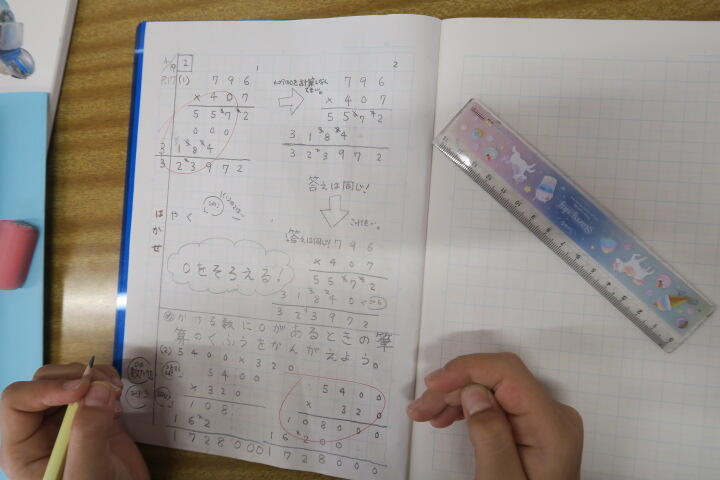 2
(1)
7 9 6
× 4 0 7
5 5 7 2
0 0 0
3 1 8 4
3 2 3 9 7 2
1
2
7 9 6
× 4 0 7
5 5 7 2
3 1 8 4
3 2 3 9 7 2
答えは同じ!
はかせ
やく
答えは同じ!
7 9 6
× 4 0 7
5 5 7 2
3 1 8 4 0
3 2 3 9 7 2
0をそろえる!
め かける数に0があるときの筆
算のくふうをかんがえよう。
(2) 5 4 0 0 × 3 2 0
5 4 0 0
× 3 2 0
1 0 8
1 6 2
1 7 2 8 0 0 0
5 4 0 0
× 3 2 0
1 0 8 0 0 0
1 6 2 0 0
1 7 2 8 0 0 0